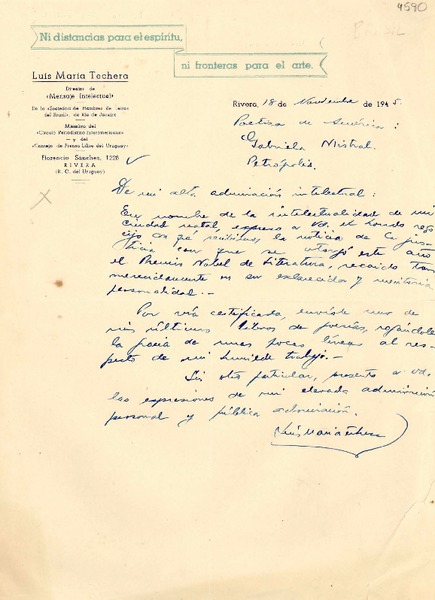 4590
Brasil
Ni distancias para el espíritu,
ni fronteras para el arte.
Luis María Techera
Director de
«Mensaje Intelectual»
De la «Sociedad de Hombres de Letras
del Brasil», de Río de Janeiro
Miembro del
«Círculo Periodístico Interamericano»
y del
«Consejo de Prensa Libre del Uruguay»
Florencio Sánchez, 1226
RIVERA
(R. O. del Uruguay)
Rivera, 18 de Noviembre de 1945.
Poetisa de América:
Gabriela Mistral.
Petrópolis.
De mi alta admiración intelectual:
En nombre de la intelectualidad de mi
ciudad natal, expreso a Vd. el hondo rego
cijo con que recibimos la noticia de la jus-
ticia con que se otorgó este año
el Premio Nobel de Literatura, recaído tan
merecidamente en su esclarecida y meritoria
personalidad.-
Por vía certificada, envíole uno de
mis últimos libros de poesías, rogándole
la gracia de unas pocas líneas al res-
pecto de mi humilde trabajo.-
Sin otro particular, presento a Vd.
las expresiones de mi elevada admiración
personal y pública admiración.
Luis María Techera